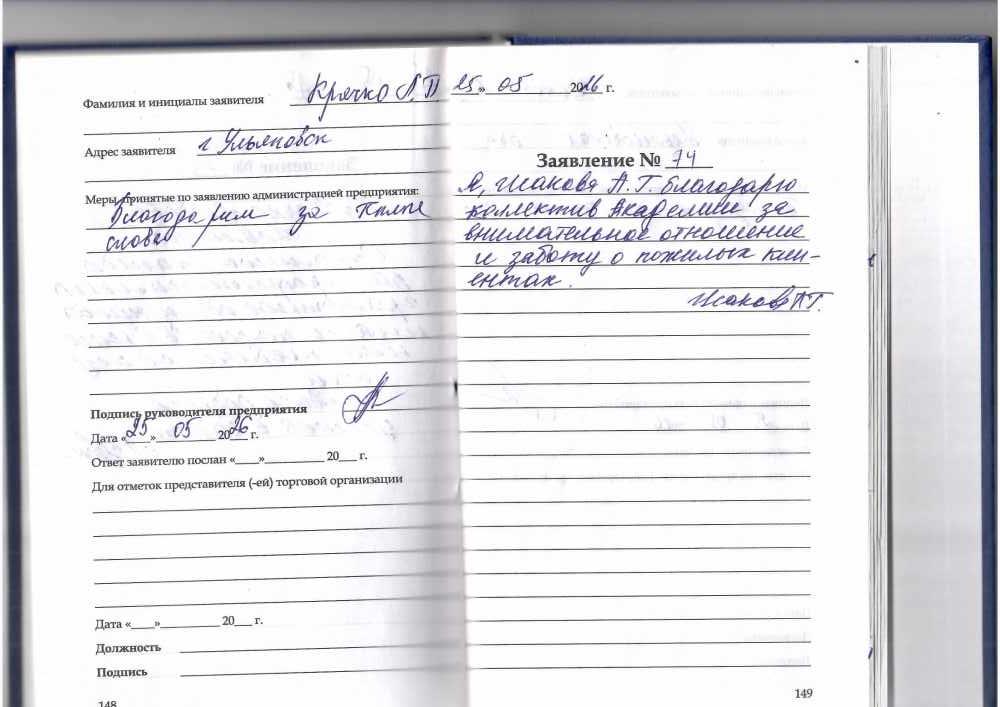 Фамилия и инициалы заявителя Крячко Л.П
Адрес заявителя г Ульяновск
Меры, принятые по заявлению администрацией предприятия:
Благодарим за тёплые
слова
Подпись руководителя предприятия
Дата «25» 05 2026 г.
Ответ заявителю послан «___»__________ 20___ г.
Для отметок представителя (-ей) торговой организации
Дата «___»__________ 20___ г.
Должность
Подпись
148
25» 05 2026 г.
Заявление № 74
Я, Жакова А.Г. благодарю
коллектив Академии за
внимательное отношение
и заботу о пожилых кли-
ентах.
Жакова А.Г.
149